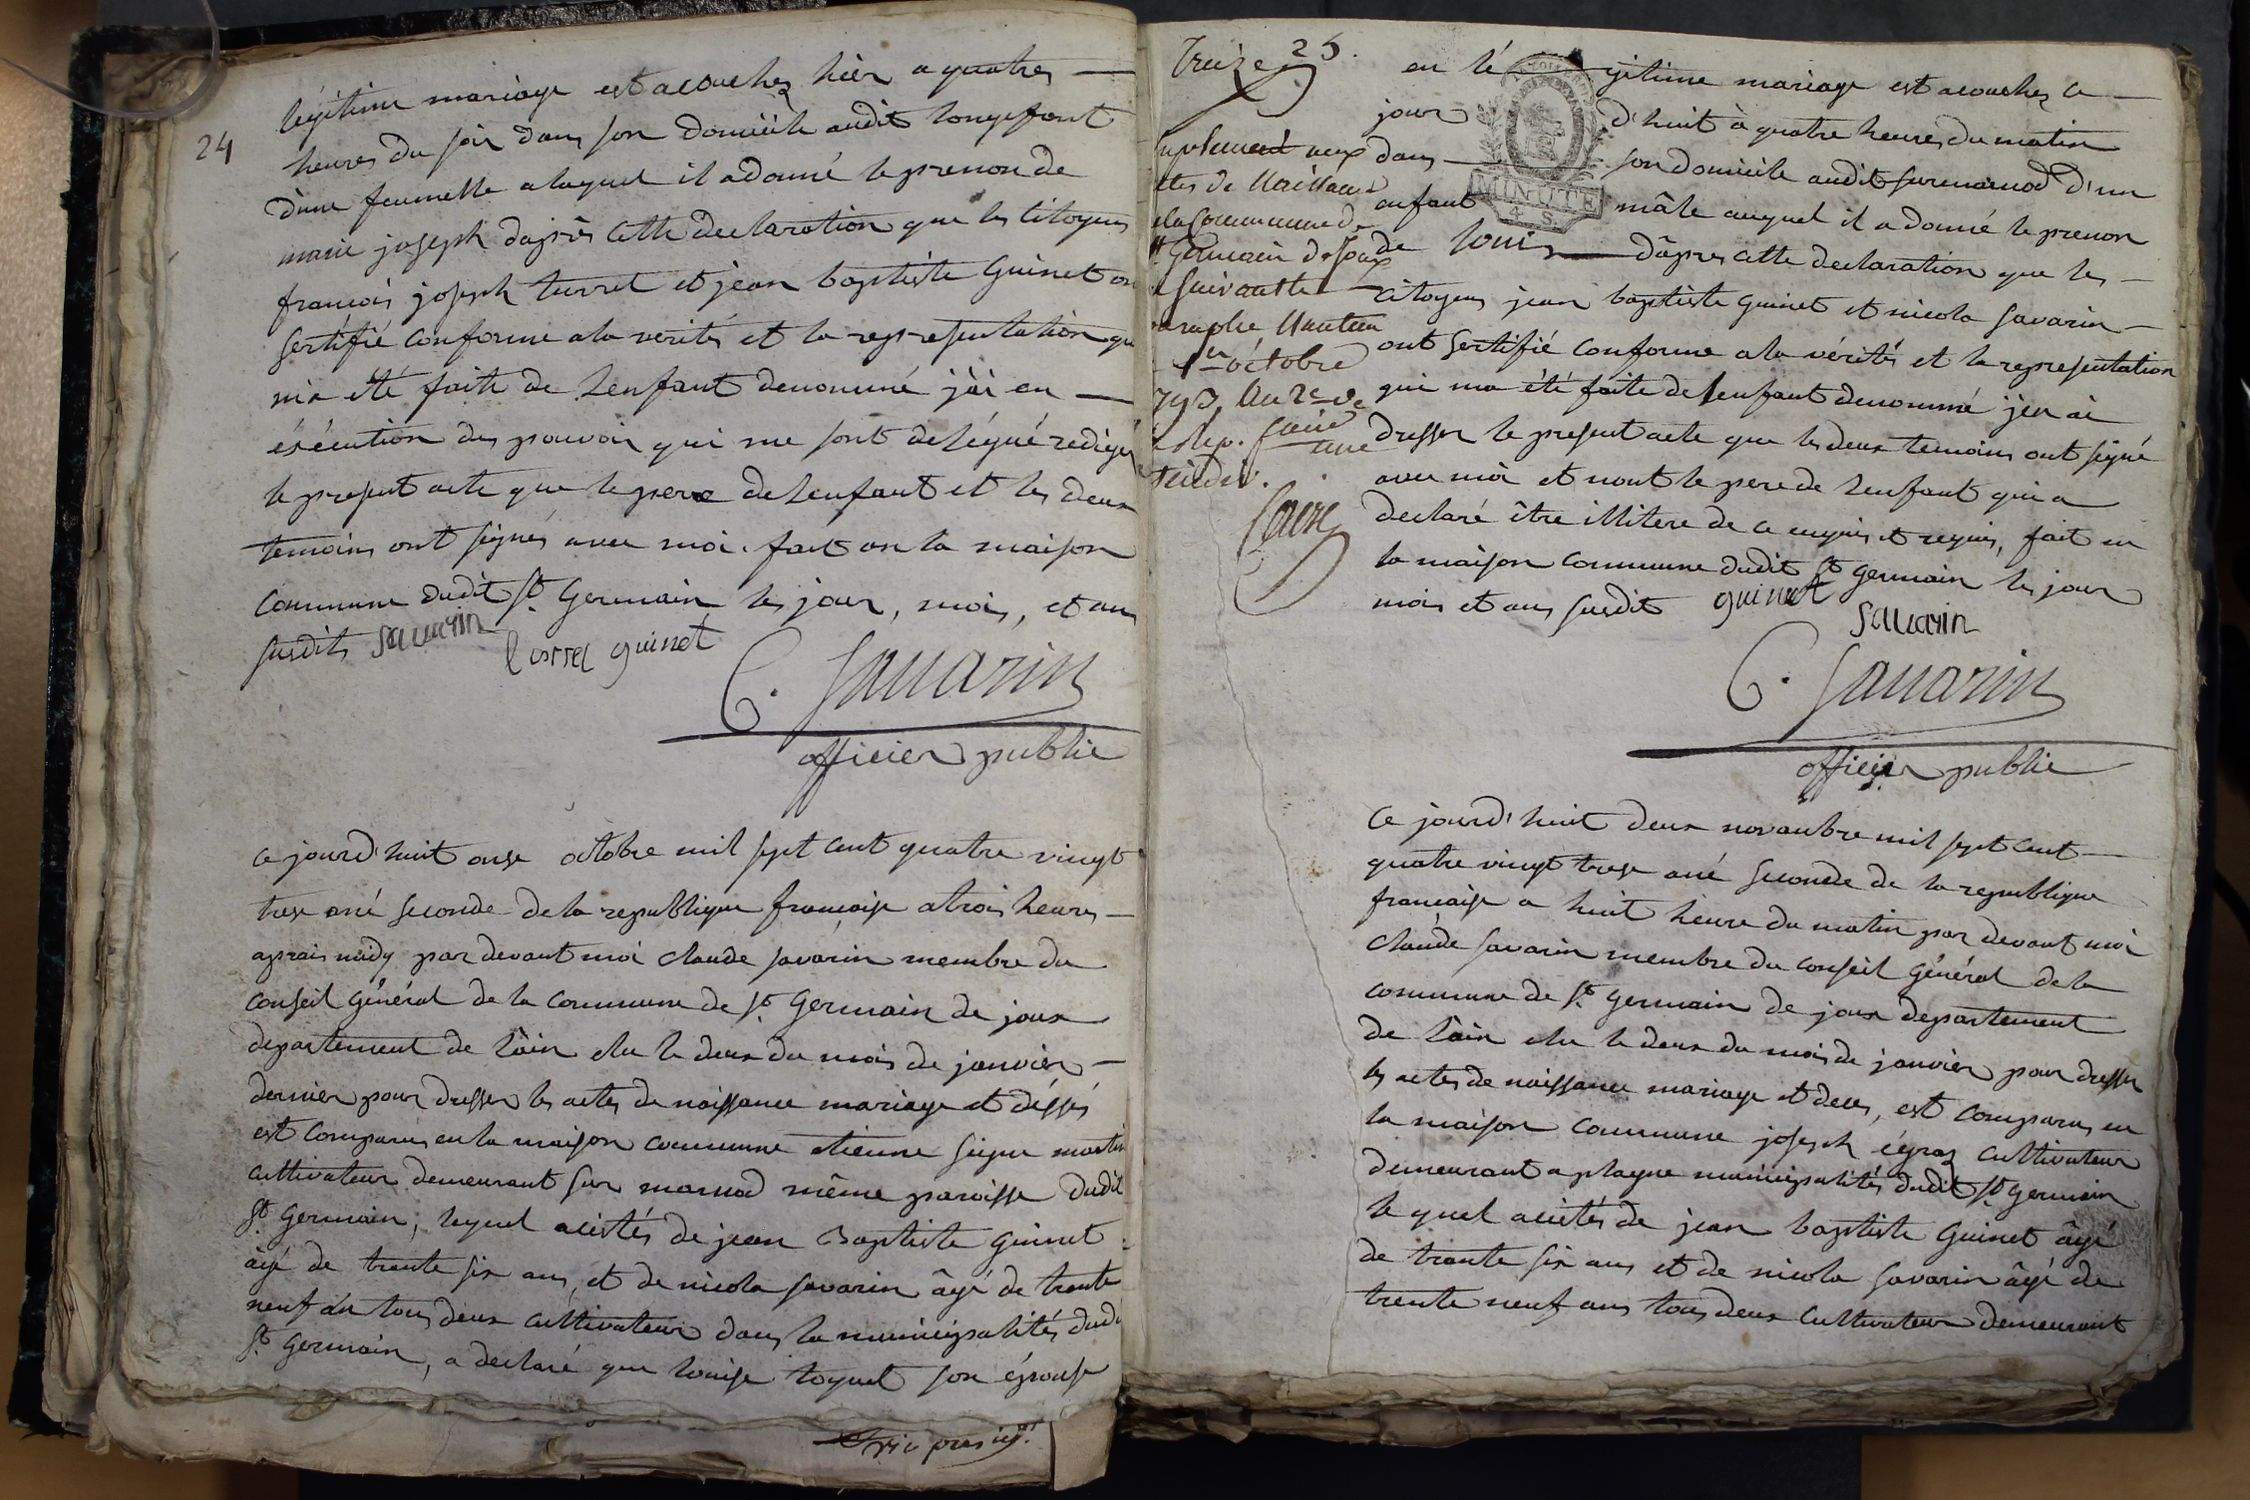 24
légitime mariage est acouchez hier a quatres
heures du soir dans son domicile audit longefont
d'une feumelle alaquel il adonné le prenon de
marie joseph daprès cette declaration que les citoyens
francois joseph turrel et jean baptiste Guinet on
sertifié conforme ala verités et la representation qu
m'a été faite de lenfant denommé j'ài en
éxécution des pouvoir qui me sont delégué redigés
le present acte que le pere de lenfant et les deux
temoins ont signés avec moi. fait en la maison
commune dudit St. Germain les jour, mois, et an
susdits savarin turrel guinet
C. Savarin
officier public
ce jourd'huit onse octobre mil sept cent quatre vingt
trese ané seconde de la republique française atrois heures
aprais midy par devant moi claude savarin membre du
conseil général de la commune de St. Germain de joux
departement de l'àin elu le deux du mois de janvier
dernier pour dresser les actes de naissance mariage et déssés
est comparus en la maison commune etienne seigne martin
cultivateur demeurant sur marnod même paroisse dudit
St. Germain, lequel acistés de jean Baptiste guinet
âgé de trente six ans, et de nicola savarin âgé de trente
neuf an tous deux cultivateur dans la municipalités dud
St. Germain, a declaré que louise toquet son épouse
Treize 25.
suplement aux
ctes de Naissance
ela Commune de
St Germain de Joux
suivante
paraphe Nantua
1er octobre
793 An 2e de
Rep. fse une
et indiv.
en lé gitime mariage est acouchez ce
jour d'huit à quatre heures du matin
dans son domicile audit surmarnod d'un
enfant mâle auquel il a donné le prenon
de louis dâpres cette declaration que les
MINUTE
4 S.
citoyens jean baptiste guinet et nicola savarin
ont sertifié conforme ala vérités et la representation
qui ma été faite de lenfant denommé jen ai
dresser le present acte que les deux temoins ont signé
avec moi et nont le pere de lenfant qui a
declaré être illitere de ce enquis et requis, fait en
la maison commune dudit St germain les jour
mois et ans susdit guinet
savarin
C. Savarin
officier public
Ce jourd'huit deux novanbre mil sept cent
quatre vingt trese ané seconde de la republique
francaise a huit heure du matin par devant moi
claude savarin membre du conseil général de la
commune de St. germain de joux departement
de làin elu le deux du mois de janvier pour dresser
les actes de naissance mariage et deces, est comparus en
la maison commune joseph égraz cultivateur
demeurant a plagne municipalités dudit St. germain
le quel acistés de jean baptiste Guinet âgé
de trante six ans et de nicola savarin âgé de
trente neuf ans tous deux cultivateur demeurant